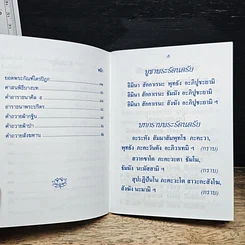 หน้า
ยอดพระกัณฑ์ไตรปิฎก
คาถาอาราธนาศีล ๕
อาราธนาพระปริตร
คำถวายผ้ากฐิน
คำถวายผ้าป่า
คำถวายสังฆทาน
บูชาพระรัตนตรัย
อิมินา สักกาเรนะ พุทธัง อะภิปูชะยามิ
อิมินา สักกาเรนะ ธัมมัง อะภิปูชะยามิ
อิมินา สักกาเรนะ สังฆัง อะภิปูชะยามิ ฯ
บทกราบพระรัตนตรัย
อะระหัง สัมมาสัมพุทโธ ภะคะวา,
พุทธัง ภะคะวันตัง อะภิวาเทมิ ฯ (กราบ)
สวากขาโต ภะคะวะตา ธัมโม,
ธัมมัง นะมัสสามิ ฯ (กราบ)
สุปะฏิปันโน ภะคะวะโต สาวะกะสังโฆ,
สังฆัง นะมามิ ฯ (กราบ)